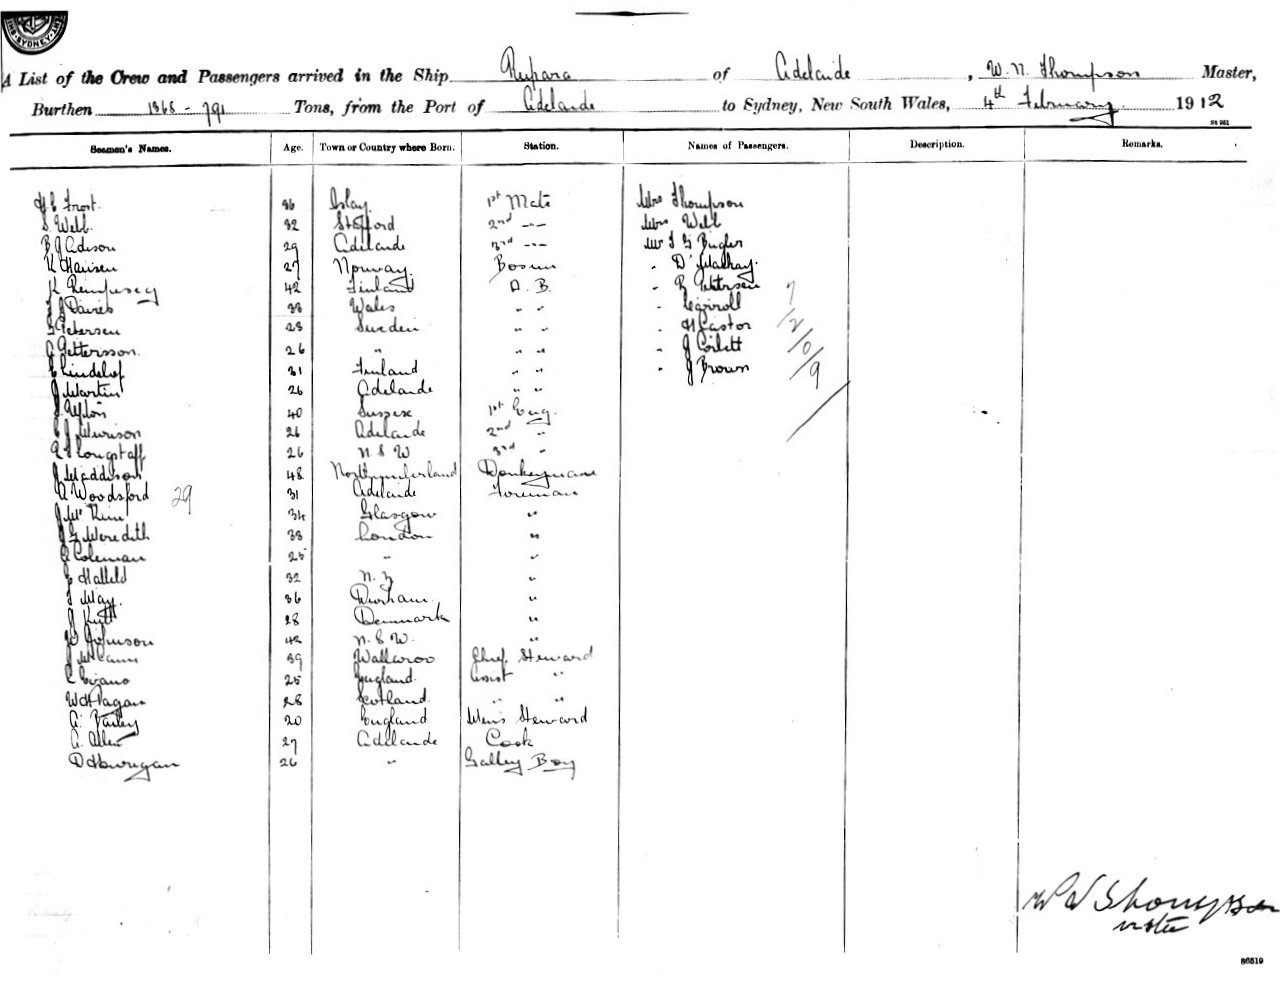 SYDNEY
A List of the Crew and Passengers arrived in the Ship Rupara of Adelaide, W. N. Thompson Master,
Burthen 1368 - 791 Tons, from the Port of Adelaide to Sydney, New South Wales, 4th February 1912
St 961
Seamen's Names. Age. Town or Country where Born. Station. Names of Passengers. Description. Remarks.
Frost 36 Islay 1st Mate Mrs Thompson
S. Webb 32 Stafford 2nd " Mrs Webb
29 Adelaide 3rd " Mr Bugler
K Hansen 27 Norway Bosun " D Mackay
K Rempusey 42 Finland A. B. " Petersen
Davies 33 Wales " " " Carroll
Petersen 23 Sweden " " " H Castor
Pettersson 26 " " " " J Corbett
Lindelof 31 Finland " " " J Brown
J Martin 26 Adelaide " "
Upton 40 Sussex 1st Eng.
Murison 26 Adelaide 2nd "
Longstaff 26 N S W 3rd "
J Maddison 48 Northumberland Donkeyman
A Woodsford 29 31 Adelaide Foreman
34 Glasgow "
J G Meredith 33 London "
A Coleman 25 " "
Halleld 32 N. Z "
J May 36 Durham "
28 Denmark "
W Johnson 42 N. S. W. "
J McCann 39 Wallaroo Chief Steward
25 England Assist "
W H Pagan 28 Scotland " "
A. Bailey 20 England Mens Steward
A. Allen 27 Adelaide Cook
D Hourigan 26 " Galley Boy
7/2/09
W N Thompson
Master
86519